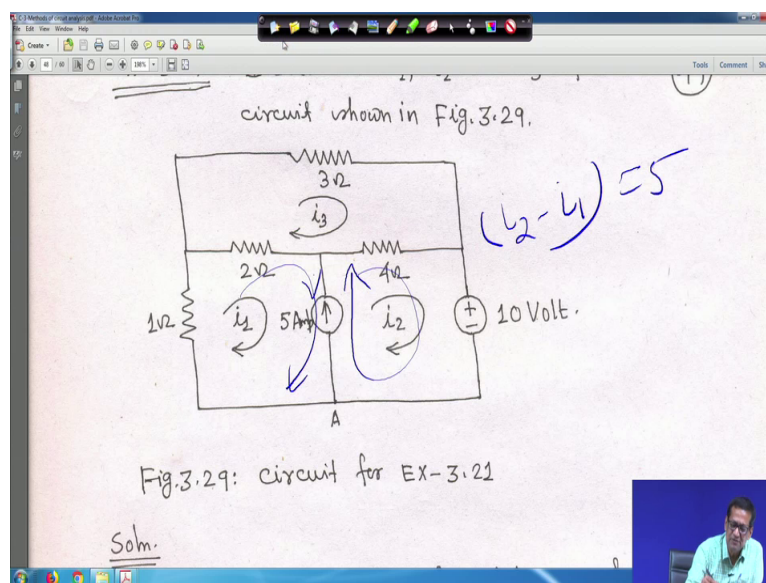 C-3-Methods of circuit analysis.pdf - Adobe Acrobat Pro
File Edit View Window Help
Create
48 / 60
198%
Tools Comment
circuit shown in Fig. 3.29.
3Ω
i3
(i2 - i1) = 5
2Ω
4Ω
1Ω
i1
5Amp
i2
+
-
10 Volt.
A
Fig. 3.29: circuit for EX-3.21
Soln.